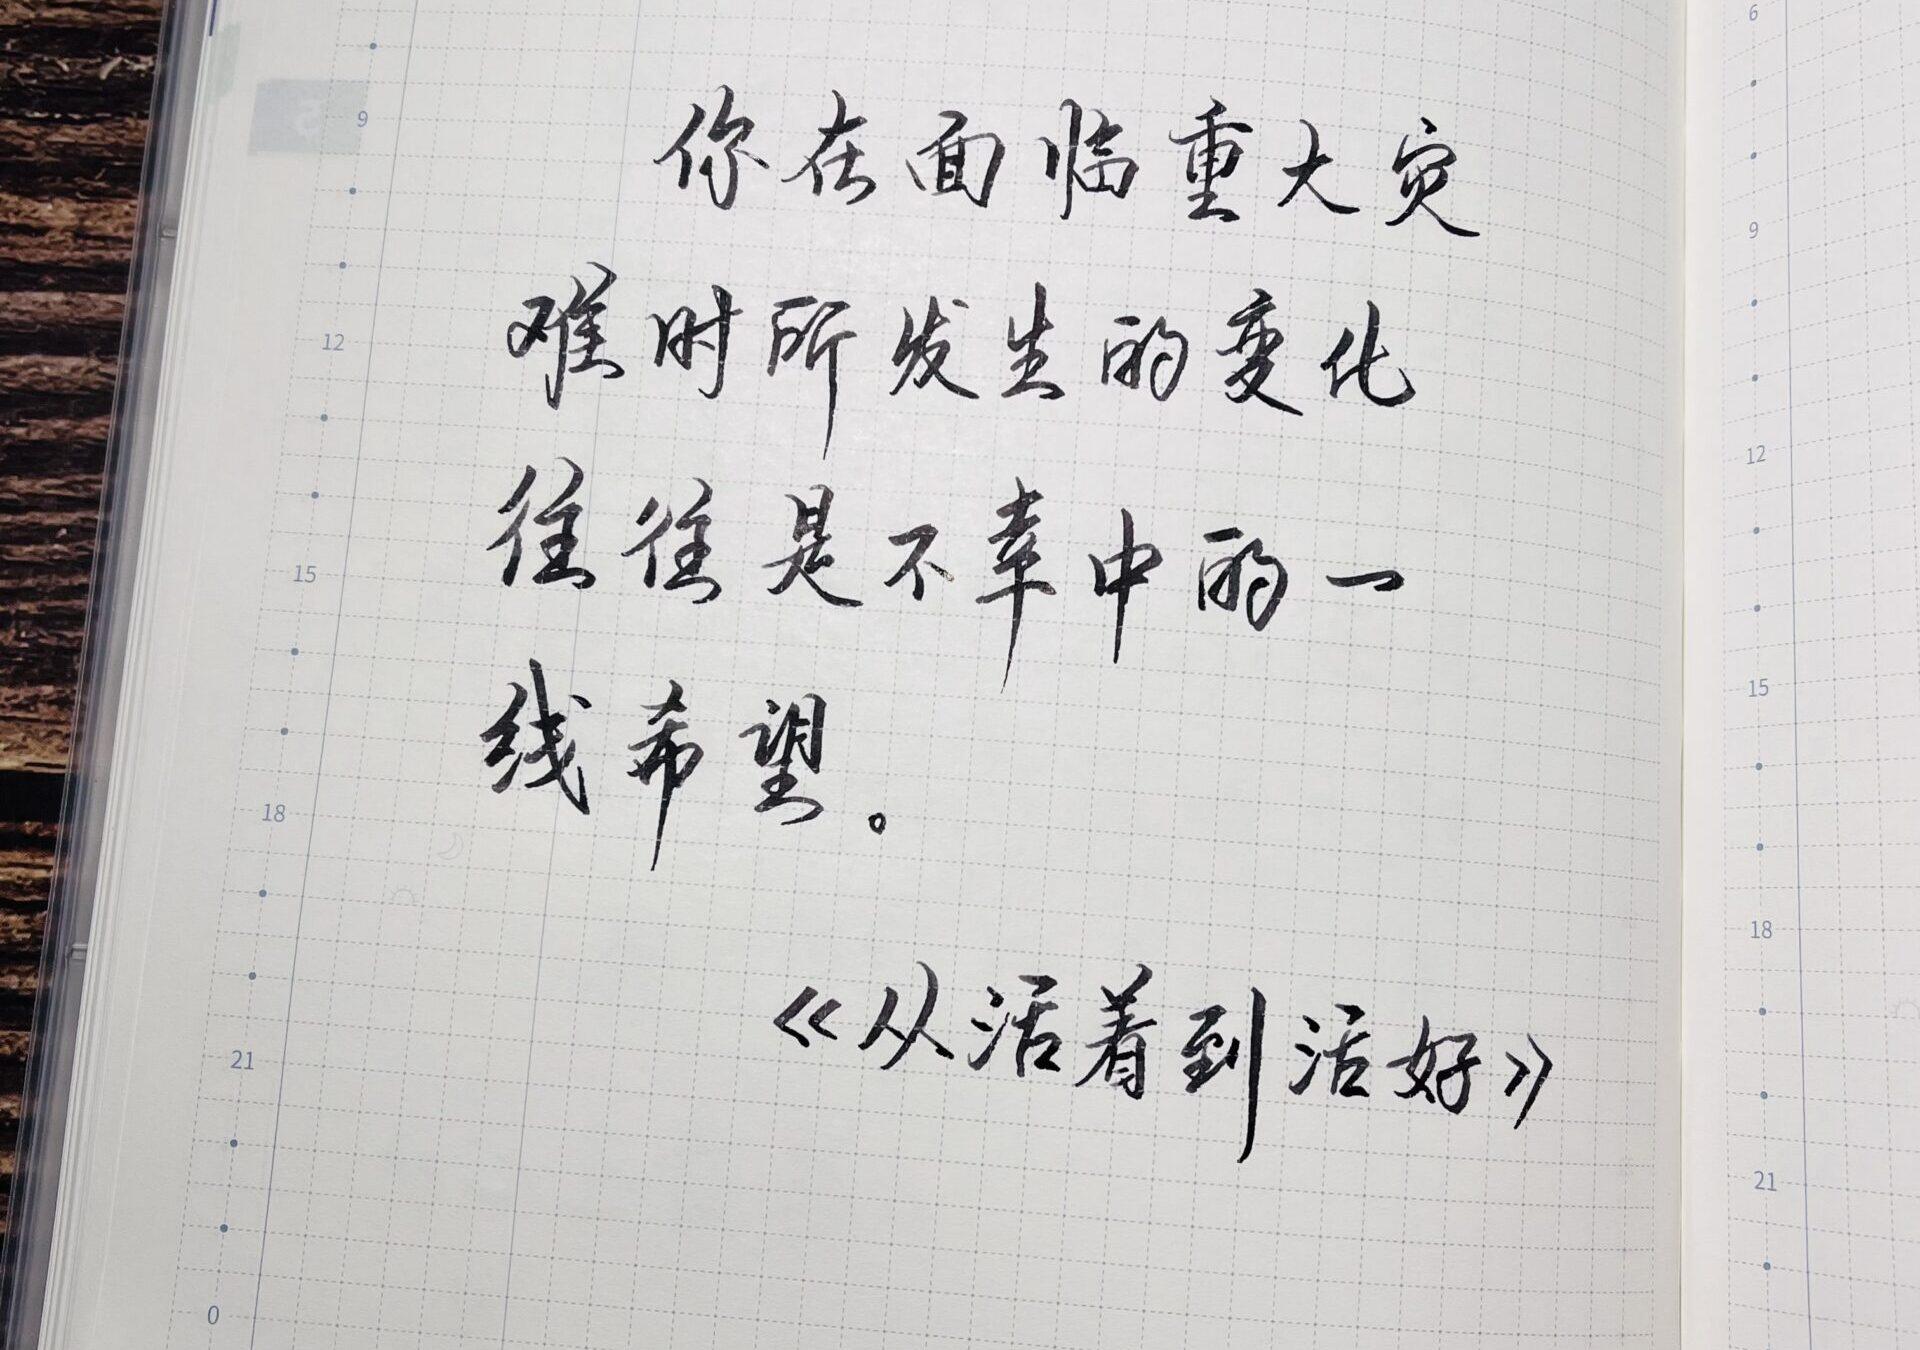 你在面临重大灾
难时所发生的变化
往往是不幸中的一
线希望。
《从活着到活好》
9
12
15
18
21
0
6
9
12
15
18
21